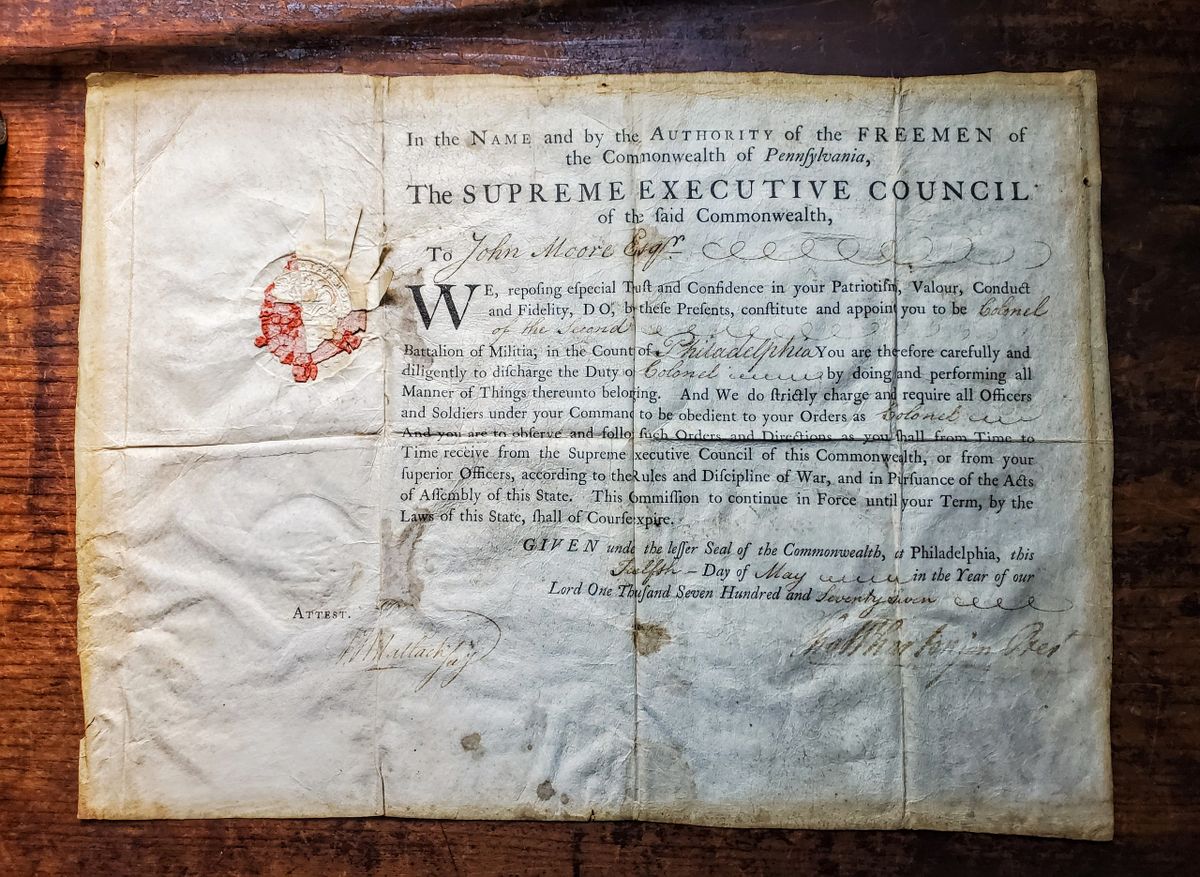 In the NAME and by the AUTHORITY of the FREEMEN of
the Commonwealth of Pennſylvania,
The SUPREME EXECUTIVE COUNCIL
of the ſaid Commonwealth,
To John Moore Esqr
WE, repoſing eſpecial Tuſt and Confidence in your Patriotiſm, Valour, Conduct
and Fidelity, DO, by theſe Preſents, conſtitute and appoint you to be Colonel
of the Second
Battalion of Militia, in the Count of Philadelphia You are therefore carefully and
diligently to diſcharge the Duty o Colonel by doing and performing all
Manner of Things thereunto beloning. And We do ſtrictly charge and require all Officers
and Soldiers under your Command to be obedient to your Orders as Colonel
And you are to obſerve and follo ſuch Orders and Directions as you ſhall from Time to
Time receive from the Supreme xecutive Council of this Commonwealth, or from your
ſuperior Officers, according to the Rules and Diſcipline of War, and in Purſuance of the Acts
of Aſſembly of this State. This Commiſſion to continue in Force until your Term, by the
Laws of this State, ſhall of Courſe expire.
GIVEN unde the leſſer Seal of the Commonwealth, at Philadelphia, this
Day of May in the Year of our
Lord One Thouſand Seven Hundred and Seventy Seven
ATTEST.